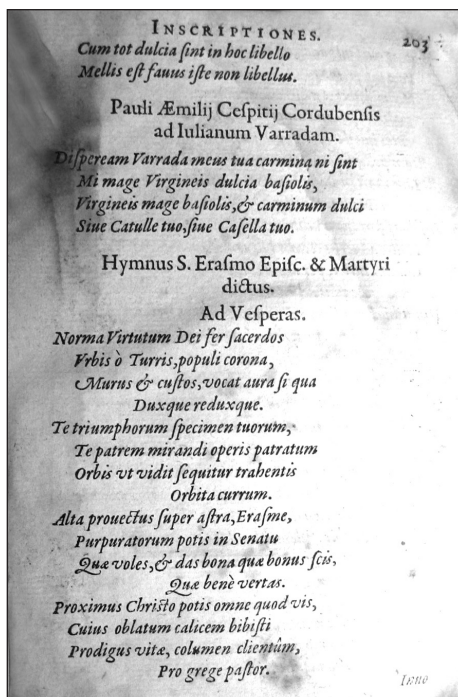 INSCRIPTIONES. 203
Cum tot dulcia ſint in hoc libello
Mellis eſt fauus iſte non libellus.
Pauli Æmilij Ceſpitij Cordubenſis
ad Iulianum Varradam.
Diſpeream Varrada meus tua carmina ni ſint
Mi mage Virgineis dulcia baſiolis,
Virgineis mage baſiolis, & carminum dulci
Siue Catulle tuo, ſiue Caſella tuo.
Hymnus S. Eraſmo Epiſc. & Martyri
dictus.
Ad Veſperas.
Norma Virtutum Dei fer ſacerdos
Vrbis ò Turris, populi corona,
Murus & cuſtos, vocat aura ſi qua
Duxque reduxque.
Te triumphorum ſpecimen tuorum,
Te patrem mirandi operis patratum
Orbis vt vidit ſequitur trahentis
Orbita currum.
Alta prouectus ſuper aſtra, Eraſme,
Purpuratorum potis in Senatu
Quæ voles, & das bona quæ bonus ſcis,
Quæ benè vertas.
Proximus Chriſto potis omne quod vis,
Cuius oblatum calicem bibiſti
Prodigus vitæ, columen clientûm,
Pro grege paſtor.